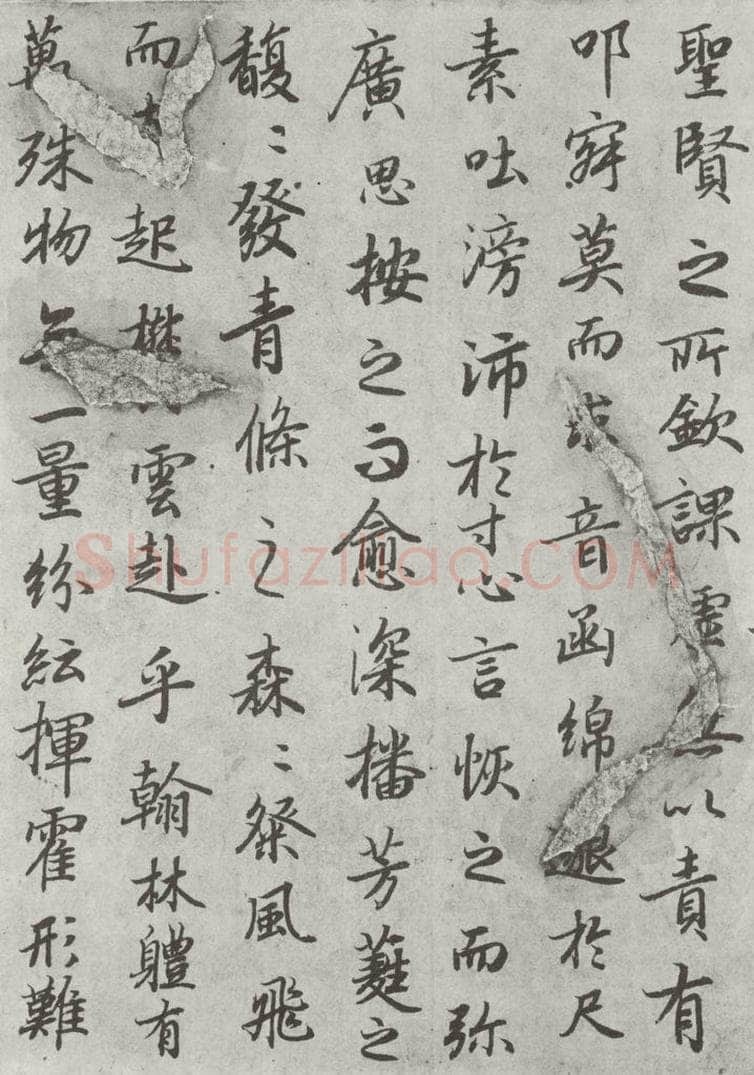 聖賢之所欽課虛無以責有
叩寂莫而求音函綿邈於尺
素吐滂沛於寸心言恢之而弥
廣思按之而愈深播芳蕤之
馥〻發青條之森〻粲風飛
而起雲赴乎翰林軆有
萬殊物無一量紛紜揮霍形難
Shufaziliao.COM